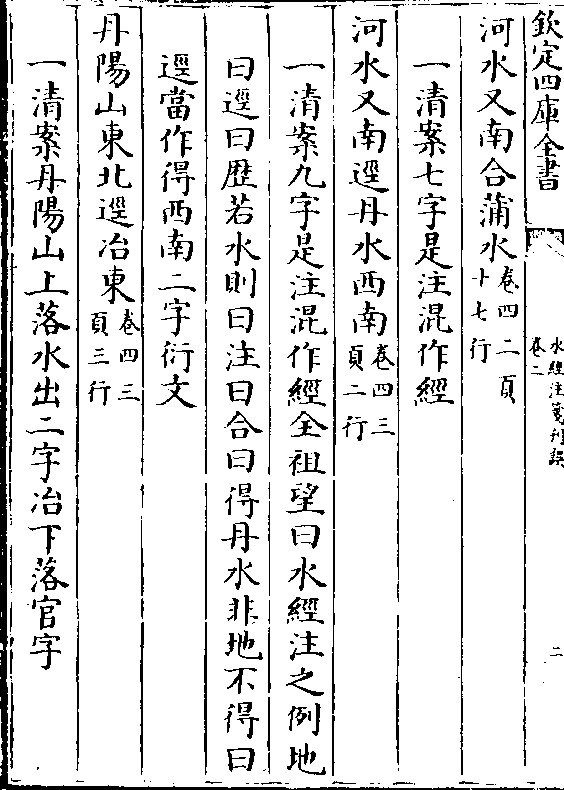 欽定四庫全書
水經注箋刊誤
卷二
二
河水又南合蒲水卷四二頁十七行
一清案七字是注混作經
河水又南逕丹水西南卷四三頁二行
一清案九字是注混作經全祖望曰水經注之例地
曰逕曰歷若水則曰注曰合曰得丹水非地不得曰
逕當作得西南二字衍文
丹陽山東北逕冶東卷四三頁三行
一清案丹陽山上落水出二字冶下落官字